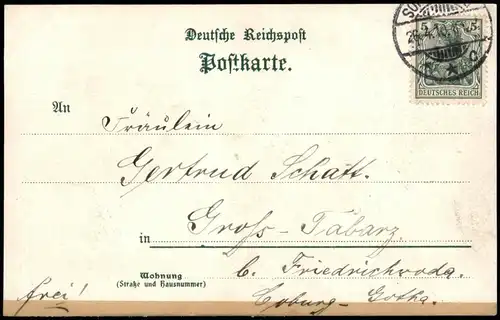 Deutsche Reichspost
Postkarte.
DEUTSCHES REICH
An
Fräulein
Gertrud Schatt.
in Gross-Tabarz.
Wohnung
(Straße und Hausnummer)
b. Friedrichroda.
frei!
Coburg-Gotha.